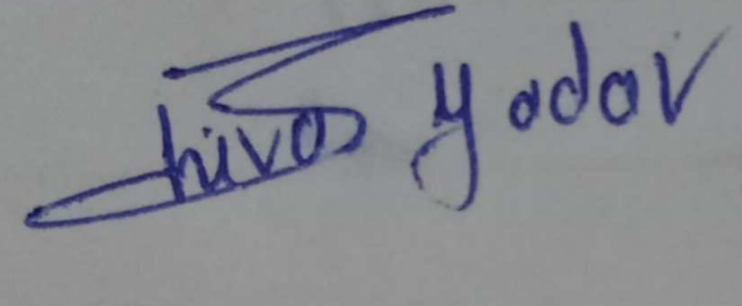 Shivas Yadav